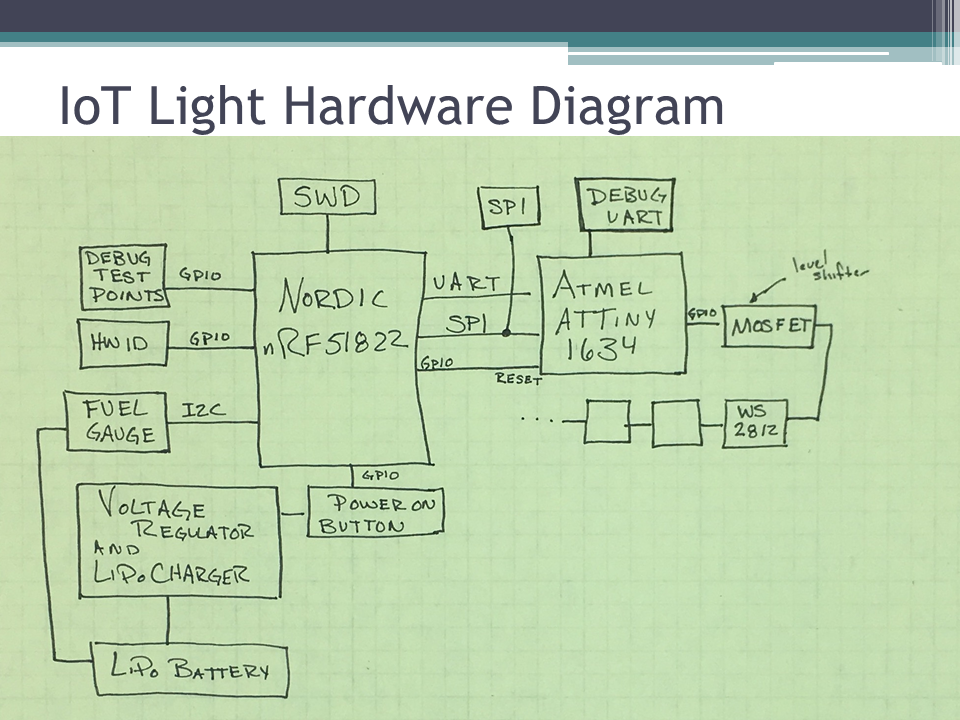 IoT Light Hardware Diagram
SWD
SPI
DEBUG
UART
DEBUG
TEST
POINTS
GPIO
NORDIC
nRF51822
UART
ATMEL
ATTINY
1634
level
shifter
GPIO
MOSFET
HW ID
GPIO
SPI
GPIO
RESET
FUEL
GAUGE
I2C
....
WS
2812
GPIO
VOLTAGE
REGULATOR
AND
LIPO CHARGER
POWER ON
BUTTON
LIPO BATTERY